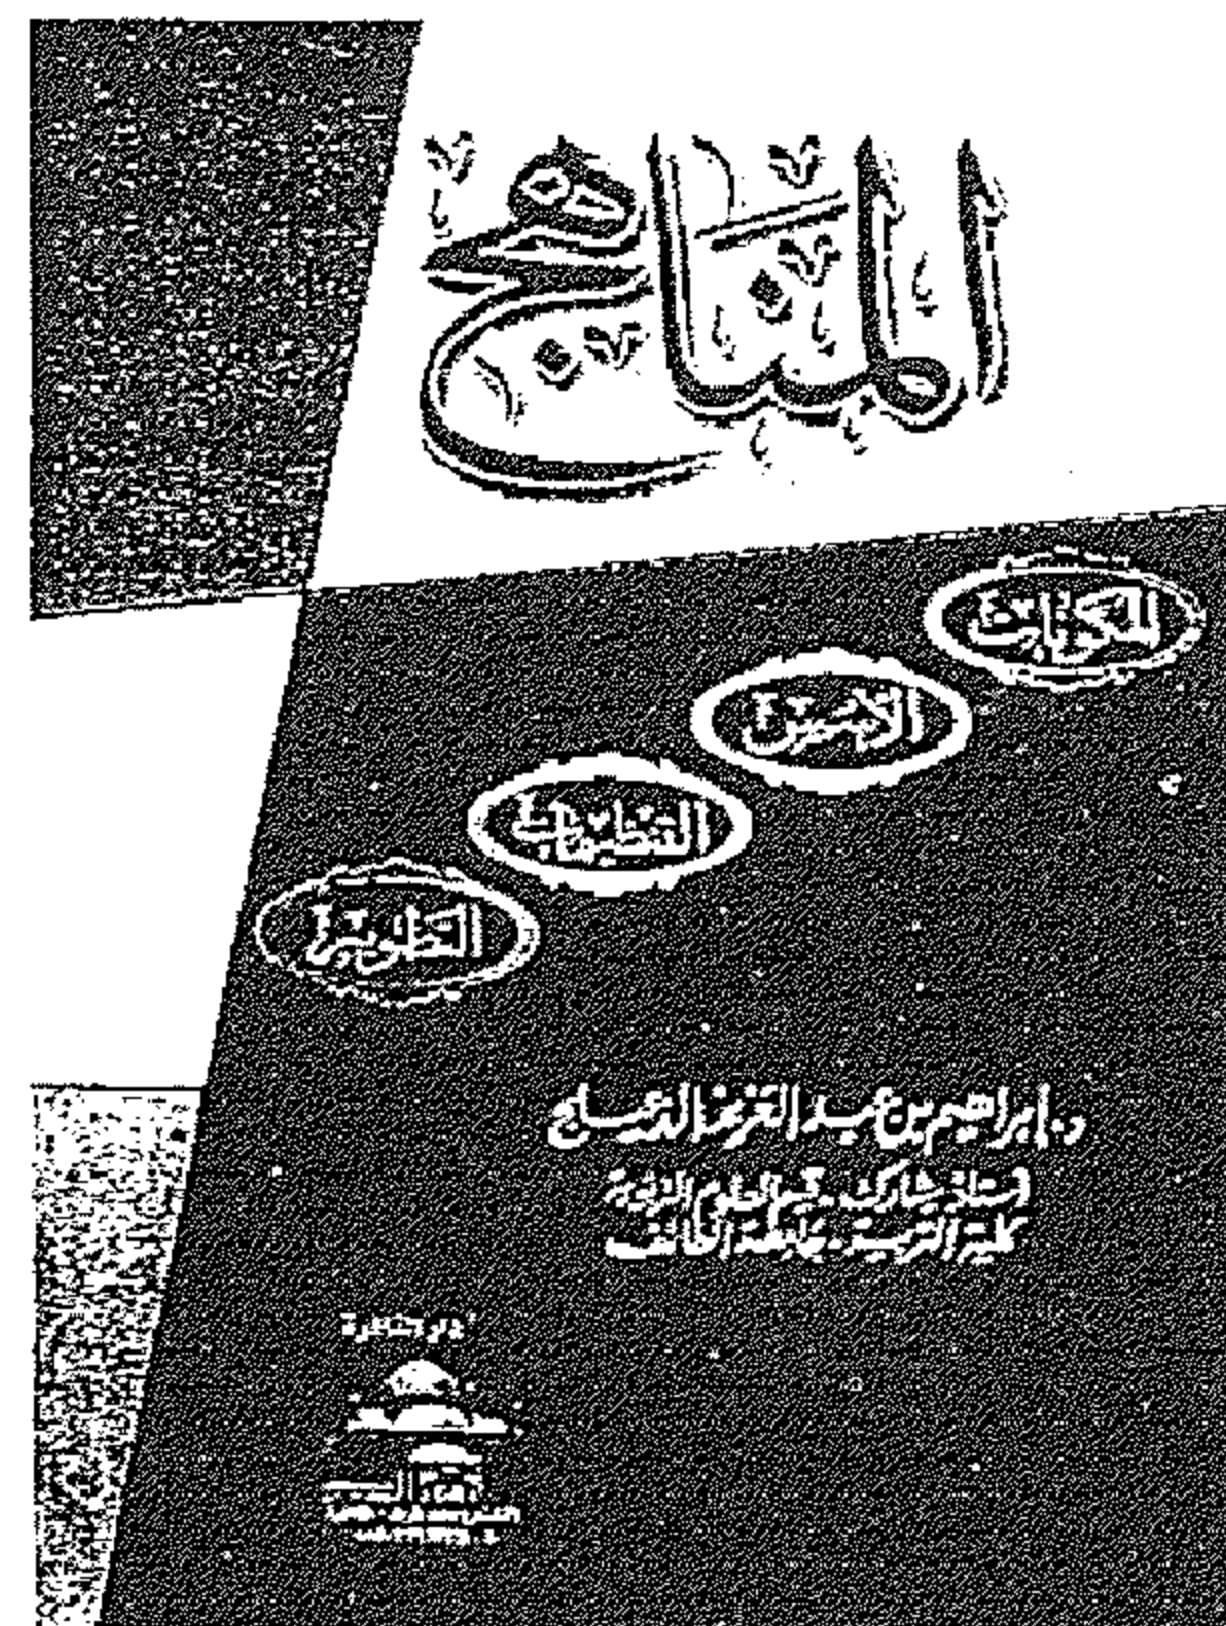 المناهج
المكونات
الأسس
التنظيمات
التطوير
د. إبراهيم بن عبد العزيز الدعيلج
أستاذ مشارك - قسم العلوم التربوية
كلية التربية - جامعة الطائف
دار القاهرة